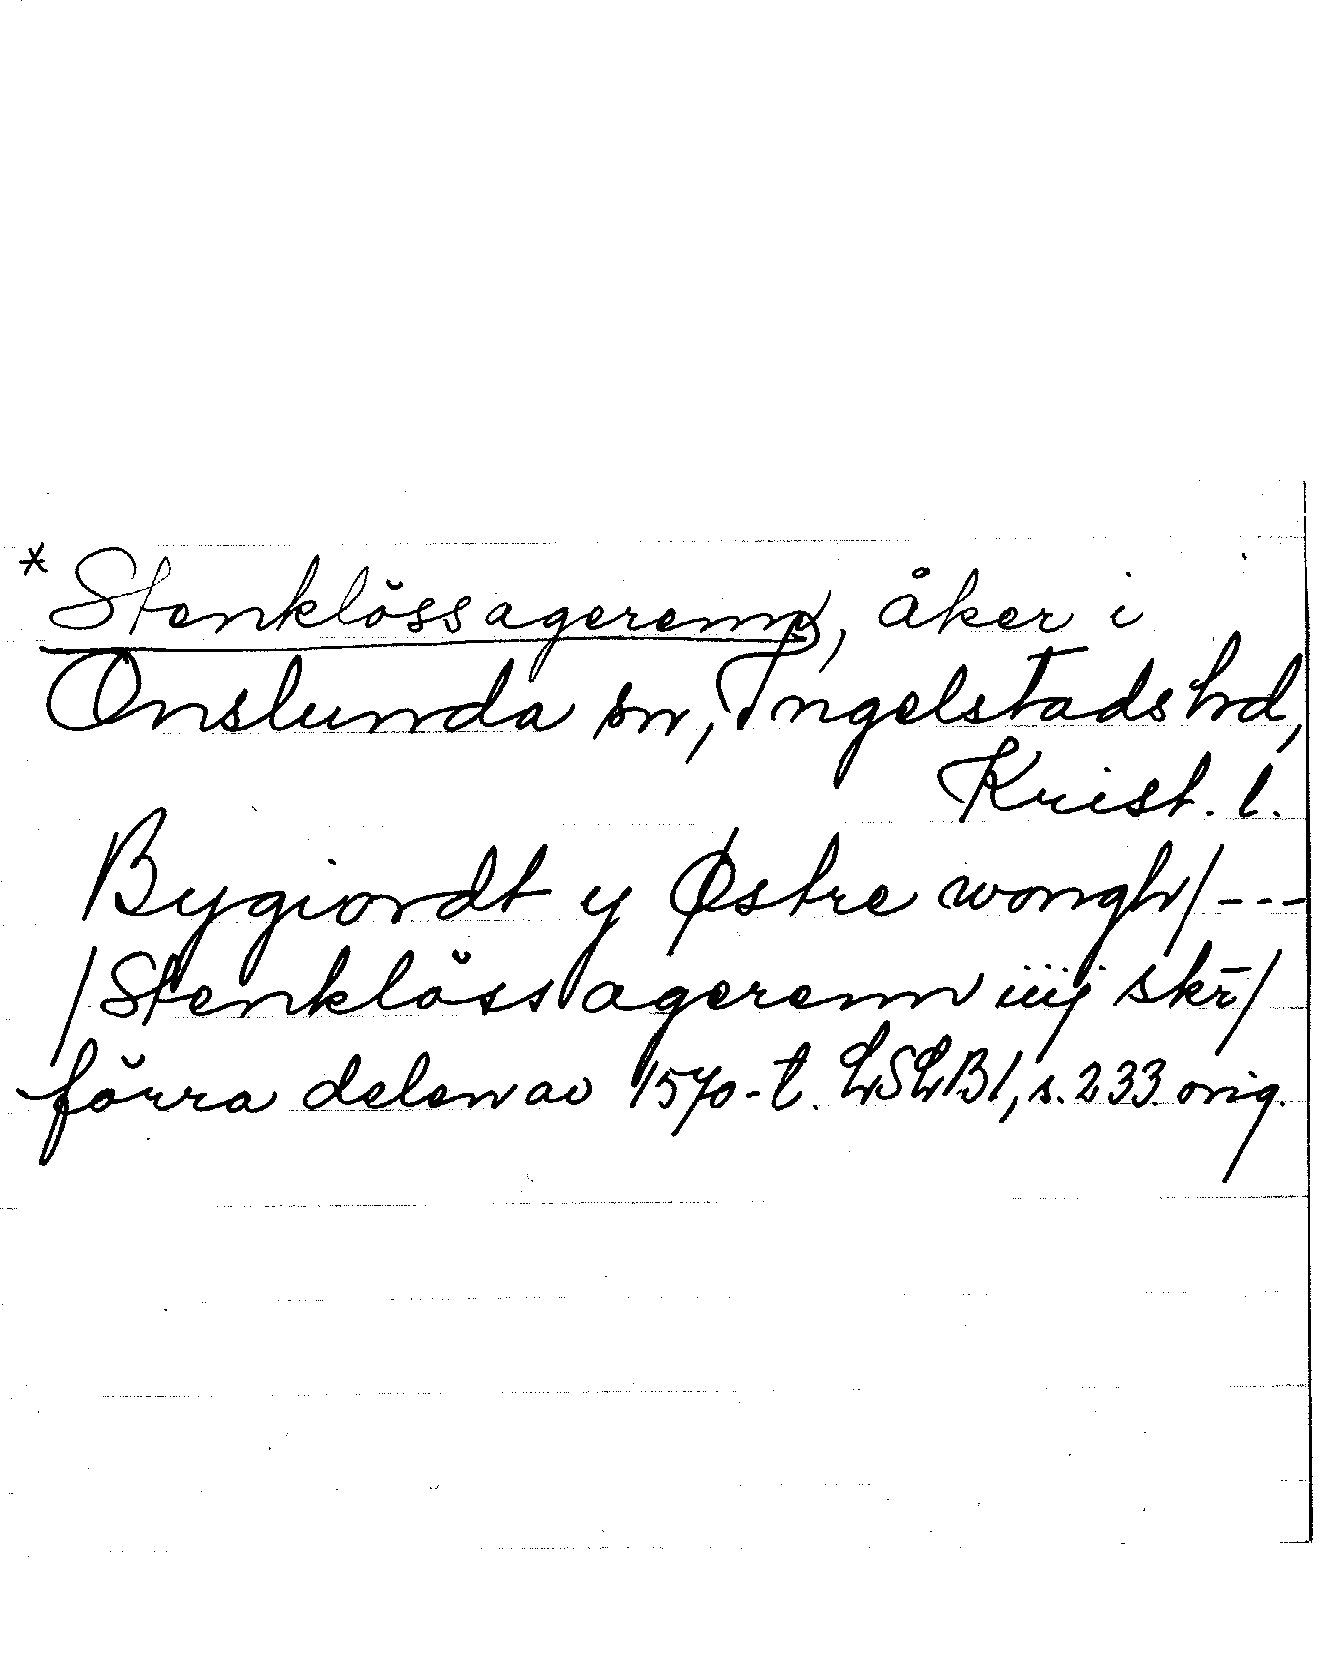 * Stenklössagerenn, åker i
Onslunda sn, Ingelstads hd,
Krist. l.
Bygiordt y Østre wongh/ ---
/Stenklöss agerenn iiij skr̄/
förra delen av 1570-t. LSLB1, s. 233 orig.